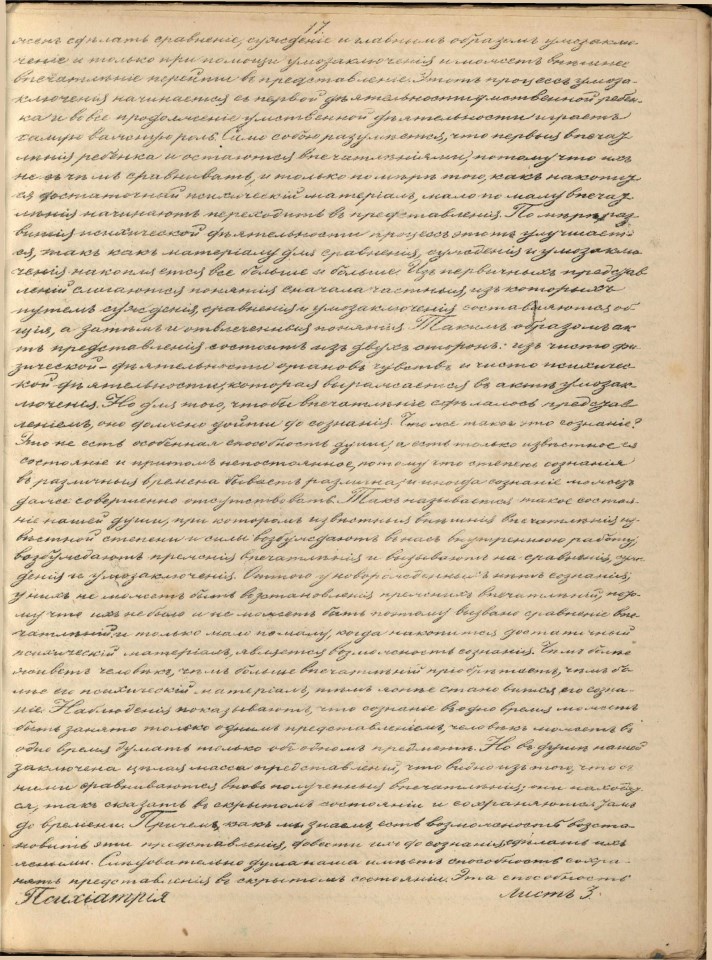 17.
женъ сдѣлать сравненіе, сужденіе и главнымъ образомъ умозаклю-
ченіе и только при помощи умозаключенія и можетъ внѣшнее
впечатлѣніе перейти въ представленіе. Этотъ процессъ умоза-
ключенія начинается съ первой дѣятельности умственной ребен-
ка и во все продолженіе умственной дѣятельности играетъ
самую важную роль. Само собою разумѣется, что первыя впечат
лѣнія ребенка и остаются впечатлѣніями, потому что ихъ
не съ чѣмъ сравнивать, и только по мѣрѣ того, какъ накопит
ся достаточный психическій матеріалъ, мало по малу впечат
лѣнія начинаютъ переходить въ представленія. По мѣрѣ раз
витія психической дѣятельности процессъ этотъ улучшает
ся, такъ какъ матеріалу для сравненія, сужденія и умозаклю
ченія накопляется все больше и больше. Изъ первичныхъ представ
леній слагаются понятія сначала частныя, изъ которыхъ
путемъ сужденія, сравненія и умозаключенія составляются об
щія, а затѣмъ и отвлеченныя понятія. Такимъ образомъ ак
тъ представленія состоитъ изъ двухъ сторонъ: изъ чисто фи
зической - дѣятельности органовъ чувствъ и чисто психичес
кой дѣятельности, которая выражается въ актѣ умозак
люченія. Но для того, чтобы впечатлѣніе сдѣлалось представ
леніемъ, оно должно дойти до сознанія. Что же такое это сознаніе?
Это не есть особенная способность души, а есть только извѣстное ея
состояніе и притомъ непостоянное, потому что степень сознанія
въ различныя времена бываетъ различна; и иногда сознаніе можетъ
даже совершенно отсутствовать. Такъ называется такое состоя-
ніе нашей души, при которомъ извѣстныя внѣшнія впечатлѣнія из
вѣстной степени и силы возбуждаютъ въ насъ внутреннюю работу,
возбуждаютъ прежнія впечатлѣнія и вызываютъ на сравненія, суж
денія и умозаключенія. Оттого у новорожденныхъ нѣтъ сознанія;
у нихъ не можетъ быть возстановленія прежнихъ впечатлѣній, пото
му что ихъ не было и не можетъ быть потому вызвано сравненіе впе
чатлѣній; и только мало по малу, когда накопится достаточный
психическій матеріалъ, является возможность сознанія. Чѣмъ болѣе
живетъ человѣкъ, чѣмъ больше впечатлѣній пріобрѣтаетъ, чѣмъ бо
лѣе его психическій матеріалъ, тѣмъ яснѣе становится его созна-
ніе. Наблюденія показываютъ, что сознаніе въ одно время можетъ
быть занято только однимъ представленіемъ, человѣкъ можетъ въ
одно время думать только объ одномъ предметѣ. Но въ душѣ нашей
заключена цѣлая масса представленій, что видно изъ того, что съ
ними сравниваются вновь полученныя впечатлѣнія; они находят
ся, такъ сказать въ скрытомъ состояніи и сохраняются тамъ
до времени. Причемъ, какъ мы знаемъ, есть возможность возста-
новить эти представленія, довести ихъ до сознанія, сдѣлать ихъ
ясными. Слѣдовательно душа наша имѣетъ способность сохра-
нять представленія въ скрытомъ состояніи. Эта способность
Психіатрія Листъ 3.